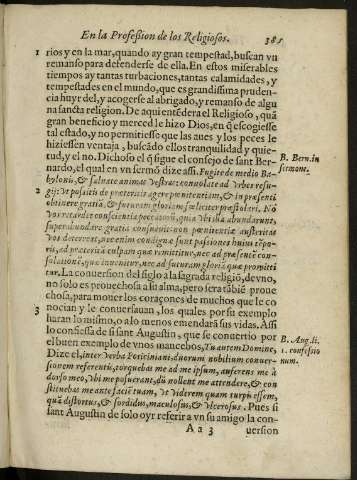 En la Profeſsion de los Religioſos. 381
1 rios y en la mar, quando ay gran tempeſtad, buſcan vn
remanſo para defenderſe de ella. En eſtos miſerables
tiempos ay tantas turbaciones, tantas calamidades, y
tempeſtades en el mundo, que es grandiſsima pruden-
cia huyr del, y acogerſe al abrigado, y remanſo de algu
na ſancta religion. De aqui entēdera el Religioſo, quā
gran beneficio y merced le hizo Dios, en q̃ eſcogieſſe
tal eſtado, y no permitieſſe que las aues y los peces le
hizieſſen ventaja, buſcādo ellos tranquilidad y quie-
tud, y el no. Dichoſo el q̃ ſigue el conſejo de sant Ber-
nardo, el qual en vn ſermō dize aſsi. Fugite de medio Ba-
bylonis, & ſaluate animas veſtras: conuolate ad vrbes refu-
2 gij: vt poſsitis de præteritis agere pœnitentiam, & in præſenti
obtinere gratiā, & futuram gloriam fœliciter præſtolari. Nō
vos retardet conſcientia peccatorū, quia vbi illa abundarunt,
ſuperabundare gratia conſueuit: non pœnitentiæ auſteritas
vos deterreat, nec enim condignæ ſunt paſsiones huius tēpo-
ris, ad præteritā culpam quæ remittitur, nec ad præſentē con-
ſolationē, quæ immittitur, nec ad futuram gloriā quæ promitti
tur. La conuerſion del ſiglo à la ſagrada religiō, de vno,
no ſolo es prouechoſa a ſu alma, pero ſera tābiē proue
choſa, para mouer los coraçones de muchos que le co
3 nocian y le conuerſauan, los quales por ſu exemplo
haran lo miſmo, o a lo menos emendarā ſus vidas. Aſsi
lo confieſſa de ſi sant Auguſtin, que ſe conuertio por
el buen exemplo de vnos mancebos, Tu autem Domine,
Dize el, inter verba Poticiniani, duorum nobilium conuer-
ſionem referentis, torquebas me ad me ipſum, auferens me à
dorſo meo, vbi me poſueram, dū nollem me attendere, & con
ſtituebas me ante faciē tuam, vt viderem quam turpis eſſem,
quā diſtortus, & ſordidus, maculoſus, & vlceroſus. Pues ſi
sant Auguſtin de ſolo oyr referir a vn ſu amigo la con-
A a 3 uerſion
B. Bern. in
ſermone.
B. Aug. li.
1. confeſsio
num.